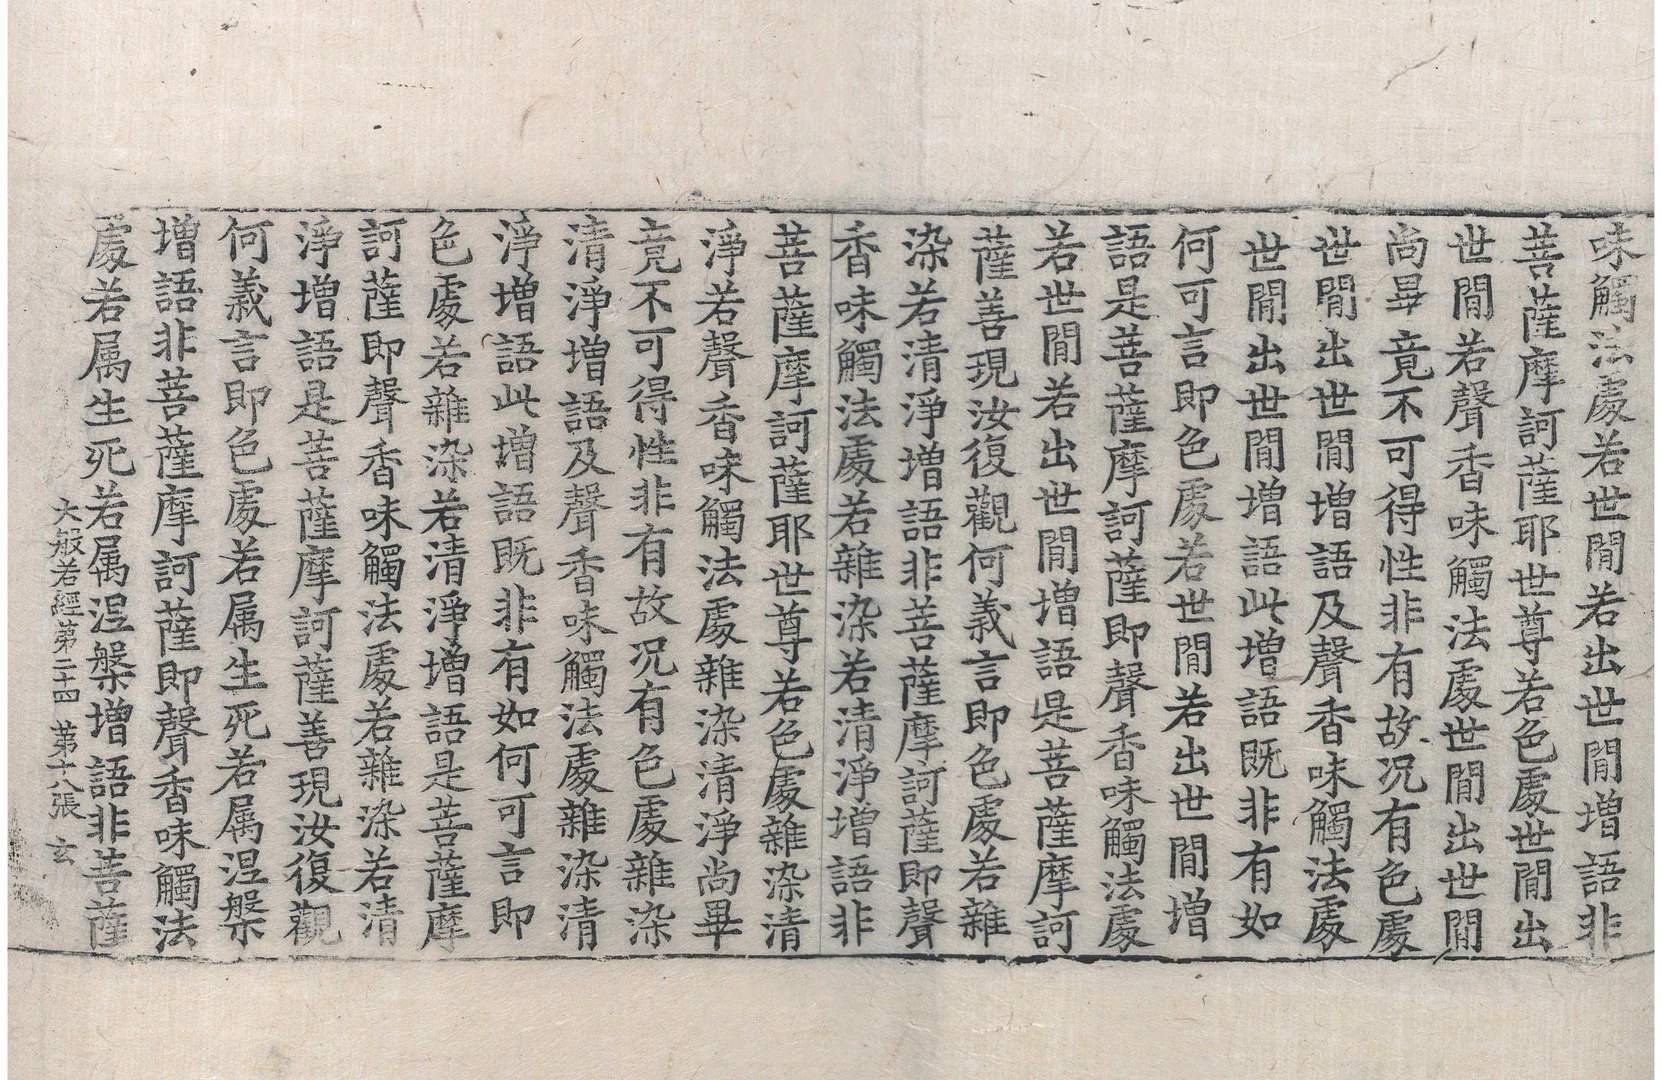 味觸法處若世閒若出世閒增語非
菩薩摩訶薩耶世尊若色處世閒出
世閒若聲香味觸法處世閒出世閒
尚畢竟不可得性非有故況有色處
世閒出世閒增語及聲香味觸法處
世閒出世閒增語此增語既非有如
何可言即色處若世閒若出世閒增
語是菩薩摩訶薩即聲香味觸法處
若世閒若出世閒增語是菩薩摩訶
薩善現汝復觀何義言即色處若雜
染若清淨增語非菩薩摩訶薩即聲
香味觸法處若雜染若清淨增語非
菩薩摩訶薩耶世尊若色處雜染清
淨若聲香味觸法處雜染清淨尚畢
竟不可得性非有故況有色處雜染
清淨增語及聲香味觸法處雜染清
淨增語此增語既非有如何可言即
色處若雜染若清淨增語是菩薩摩
訶薩即聲香味觸法處若雜染若清
淨增語是菩薩摩訶薩善現汝復觀
何義言即色處若属生死若属涅槃
增語非菩薩摩訶薩即聲香味觸法
處若属生死若属涅槃增語非菩薩
大般若經第二十四 第十八張 玄